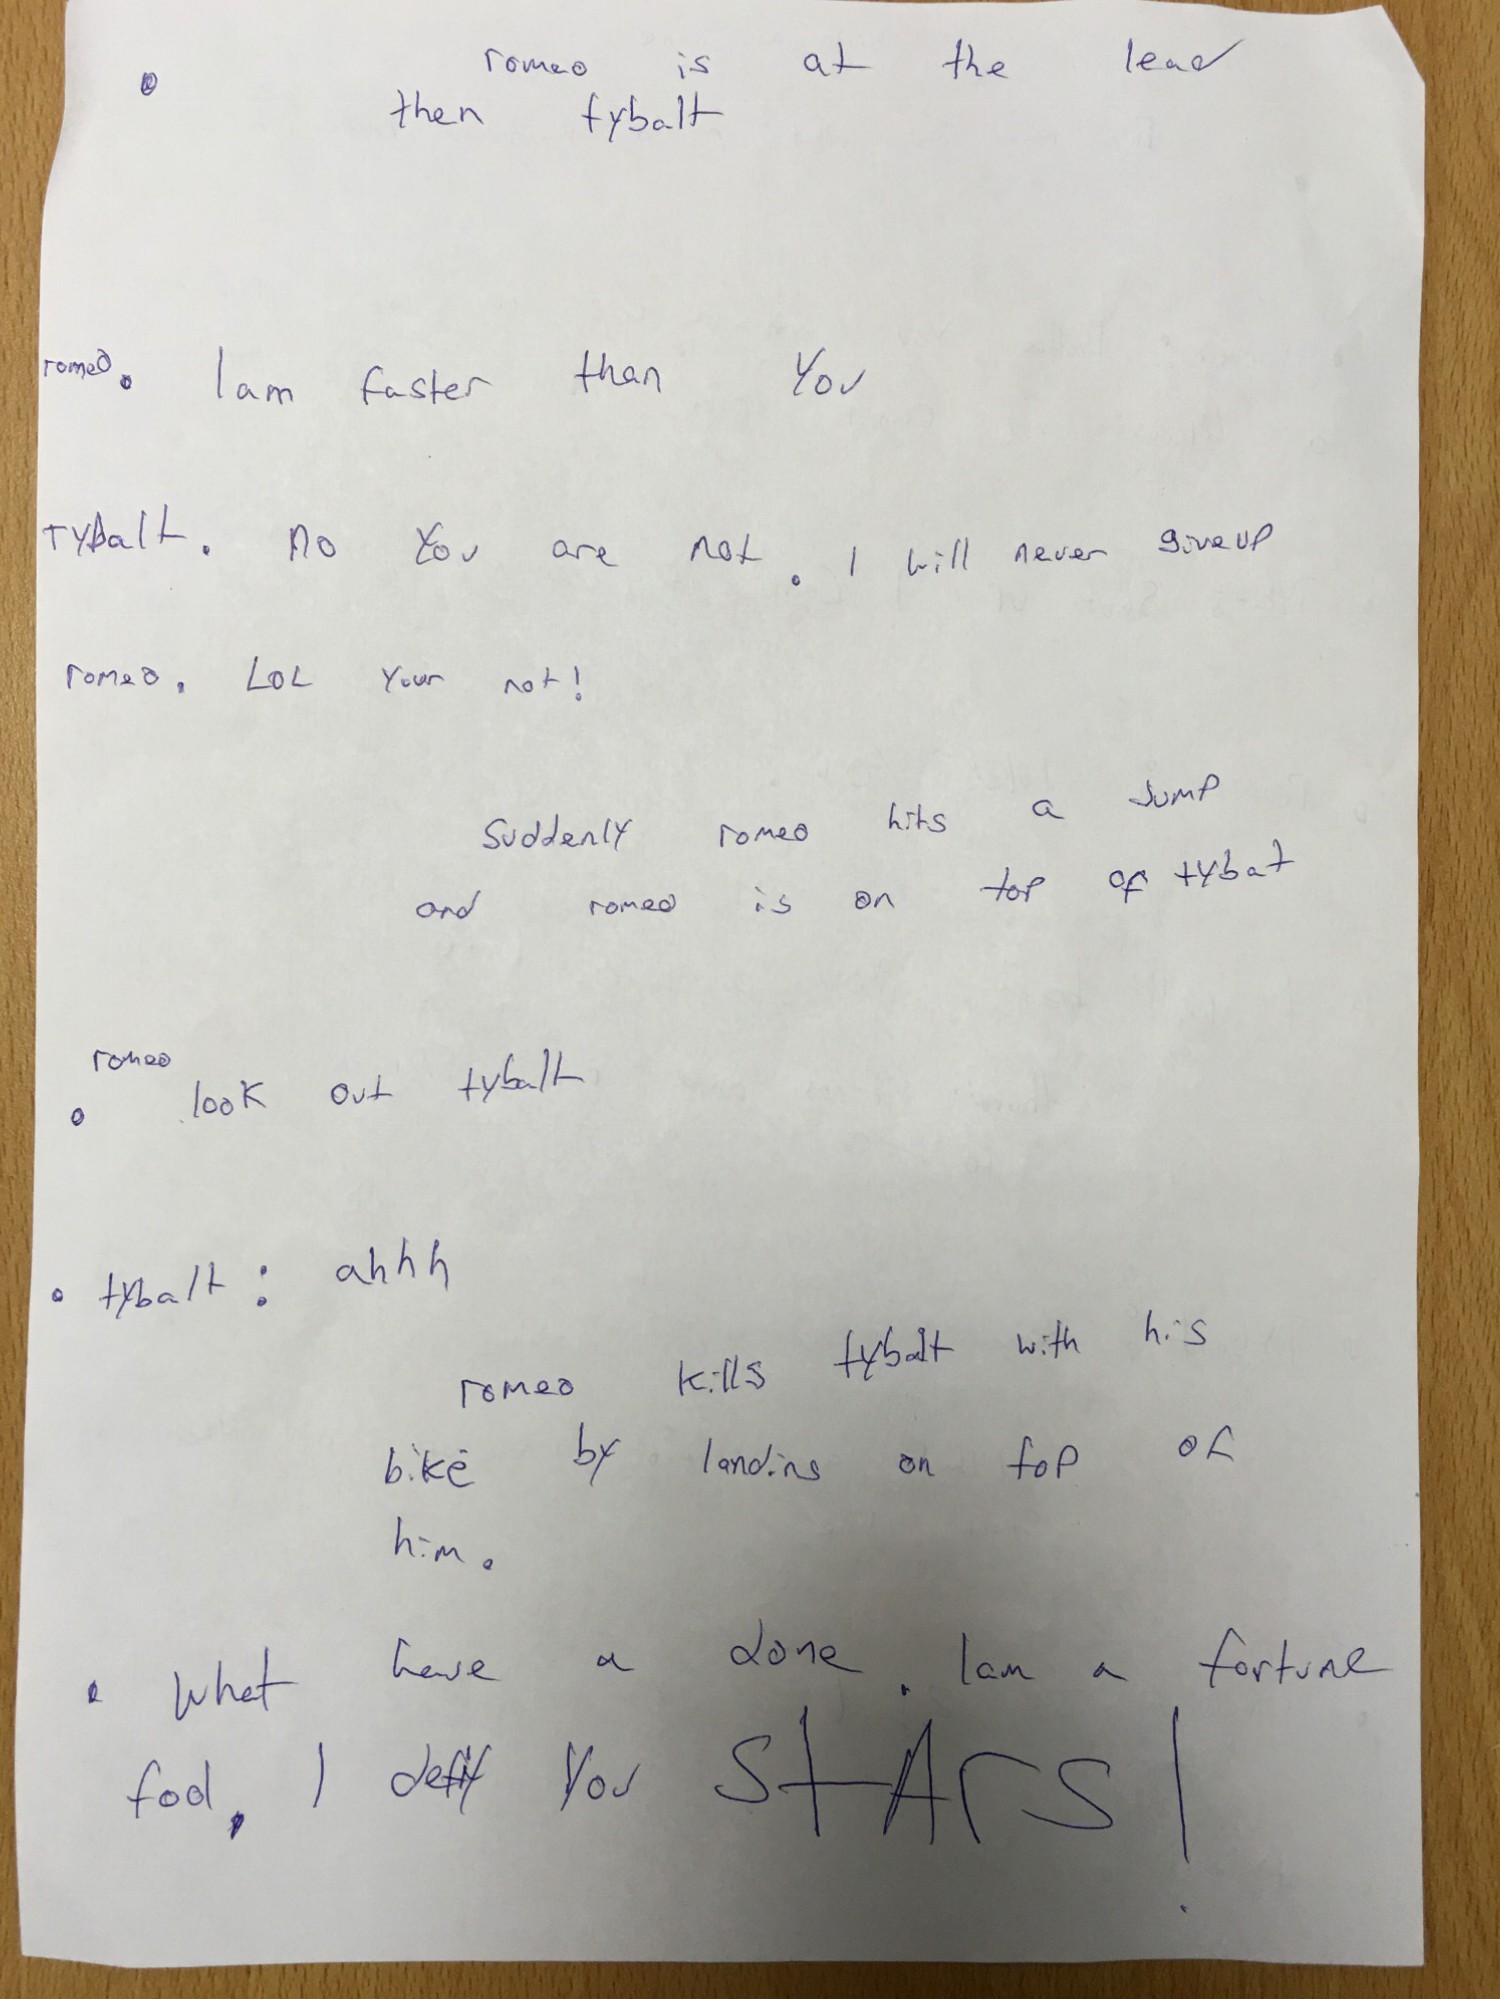 romeo is at the lead
then tybalt
romeo. I am faster than You
Tybalt. no You are not. I will never giveup
romeo. LOL Your not!
Suddenly romeo hits a Jump
and romeo is on top of tybat
romeo
look out tybalt
tybalt: ahhh
romeo kills tybalt with his
bike by landing on top of
him.
What have a done. I am a fortune
fool, I defiy You stArs!